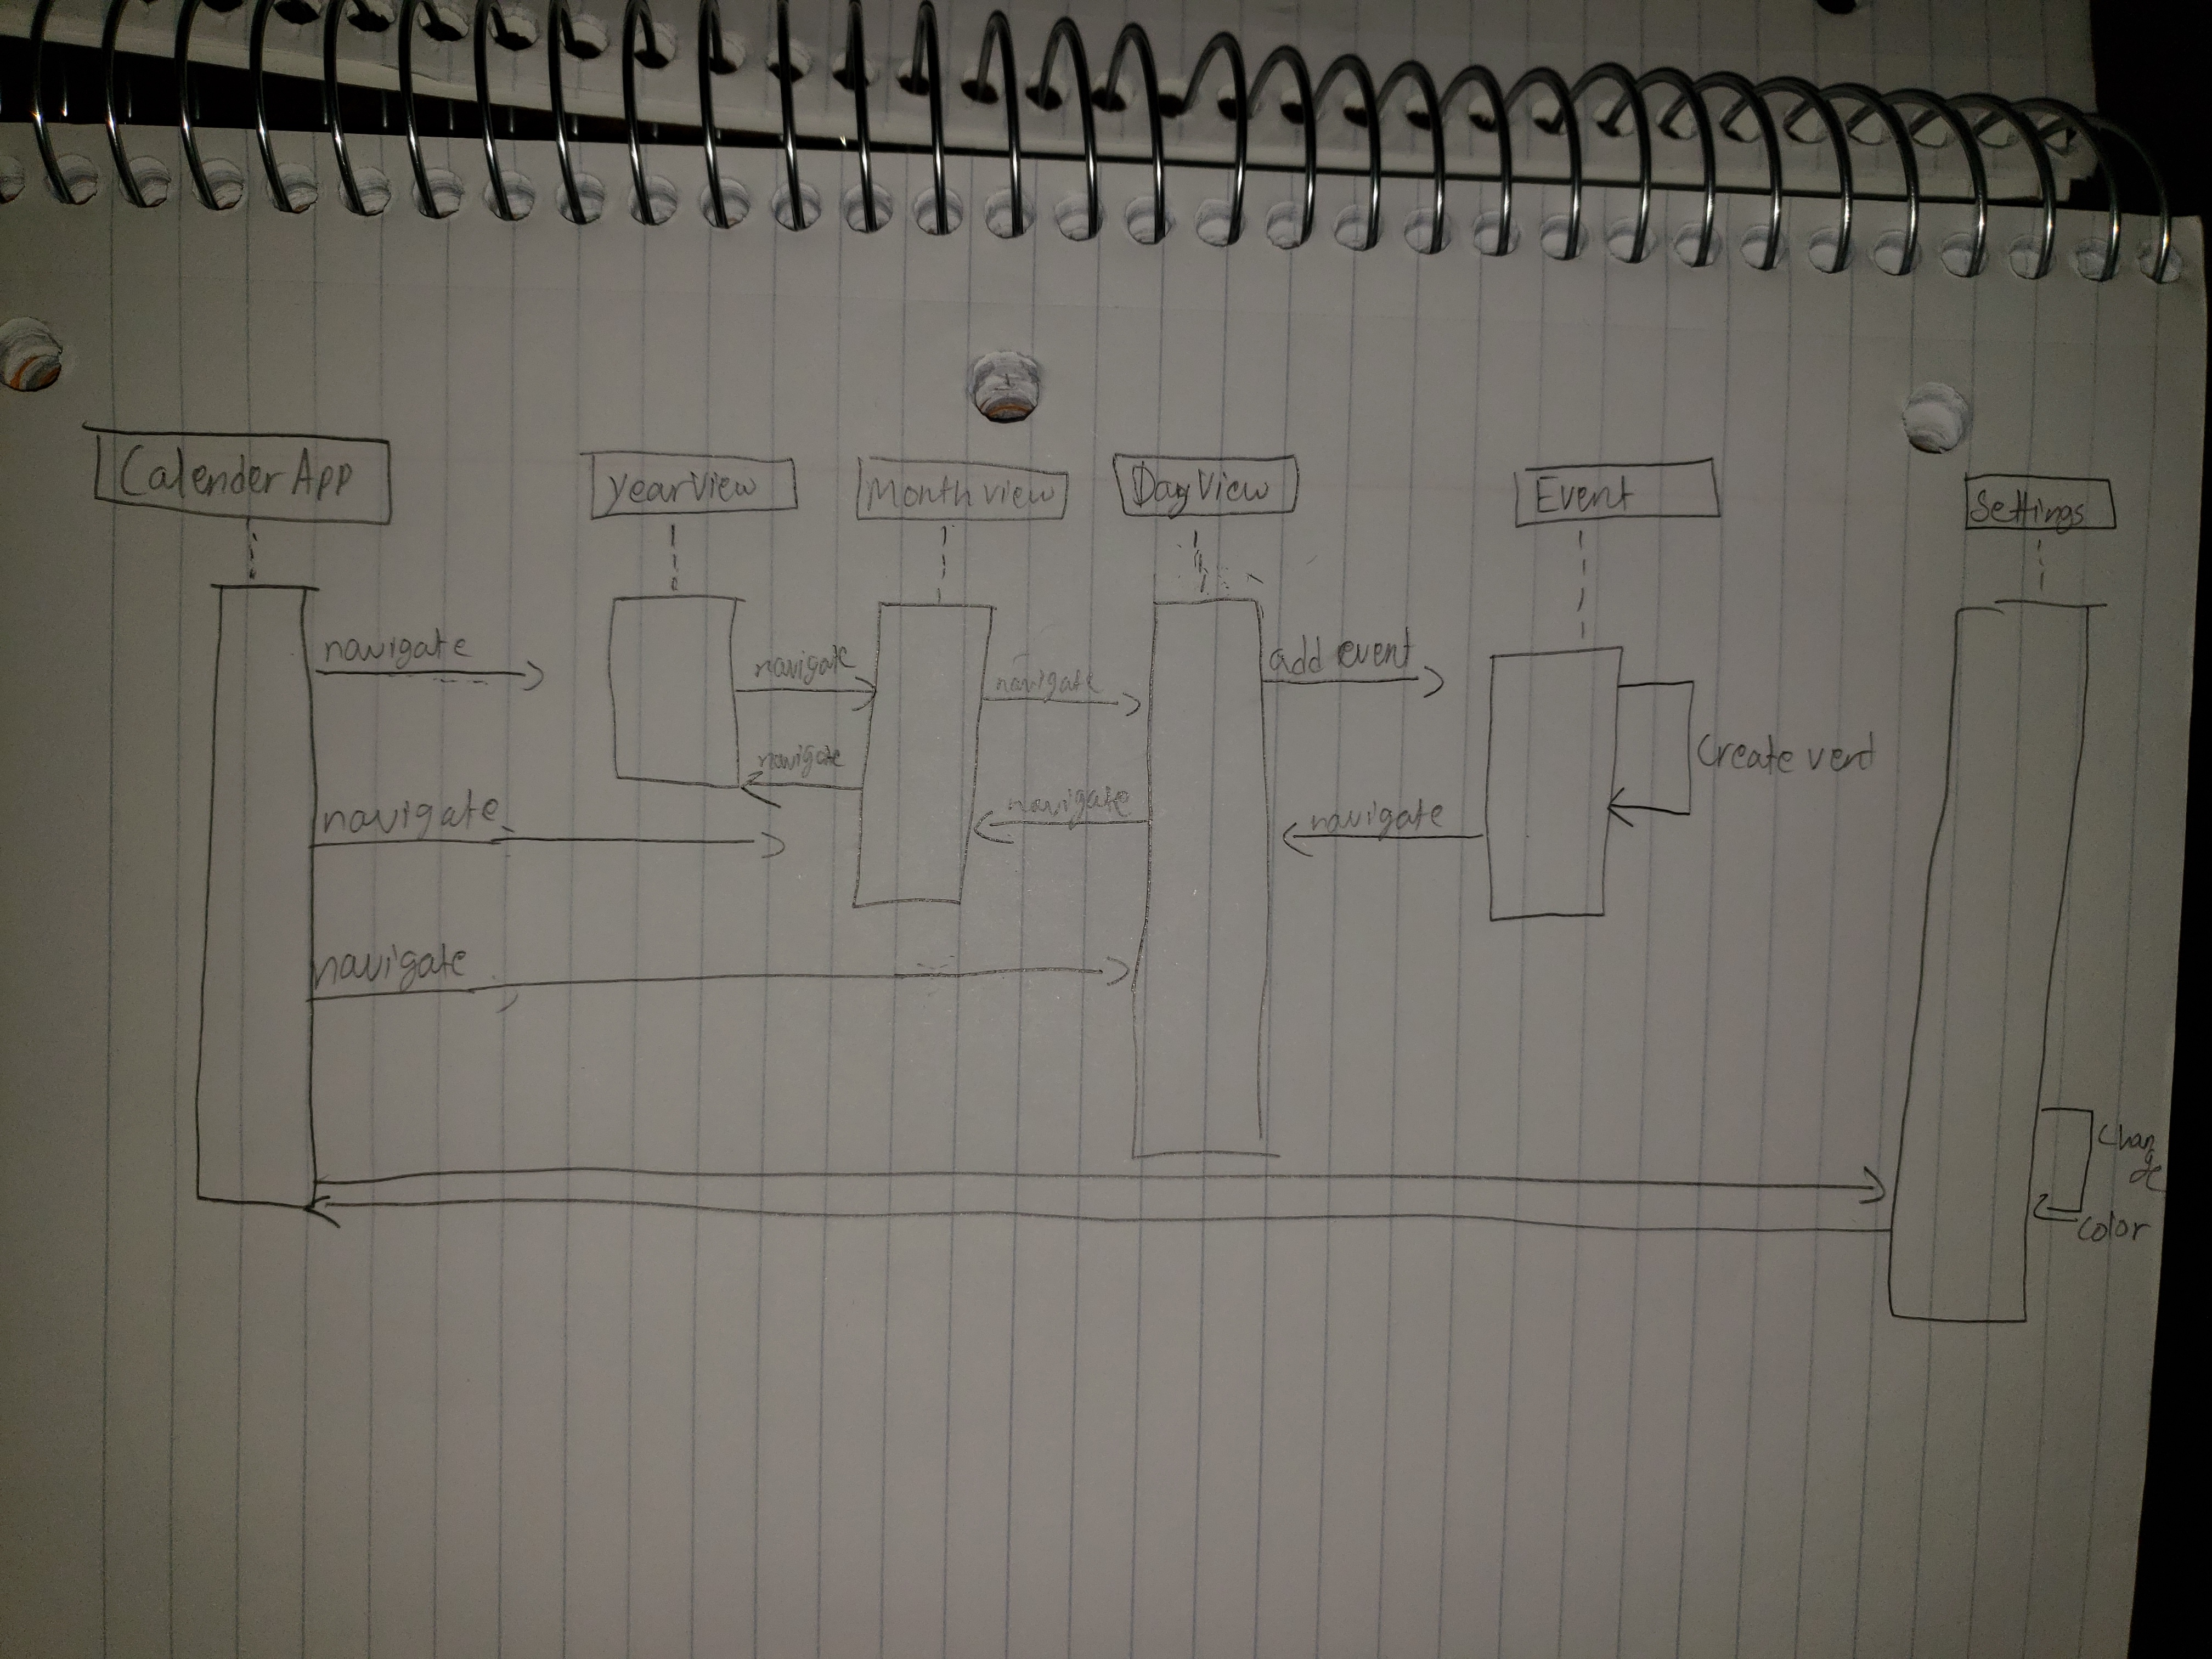 Calender App
Year View
Month view
Day View
Event
Settings
navigate
navigate
navigate
add event
navigate
navigate
navigate
navigate
navigate
Create vent
Chan
ge
color